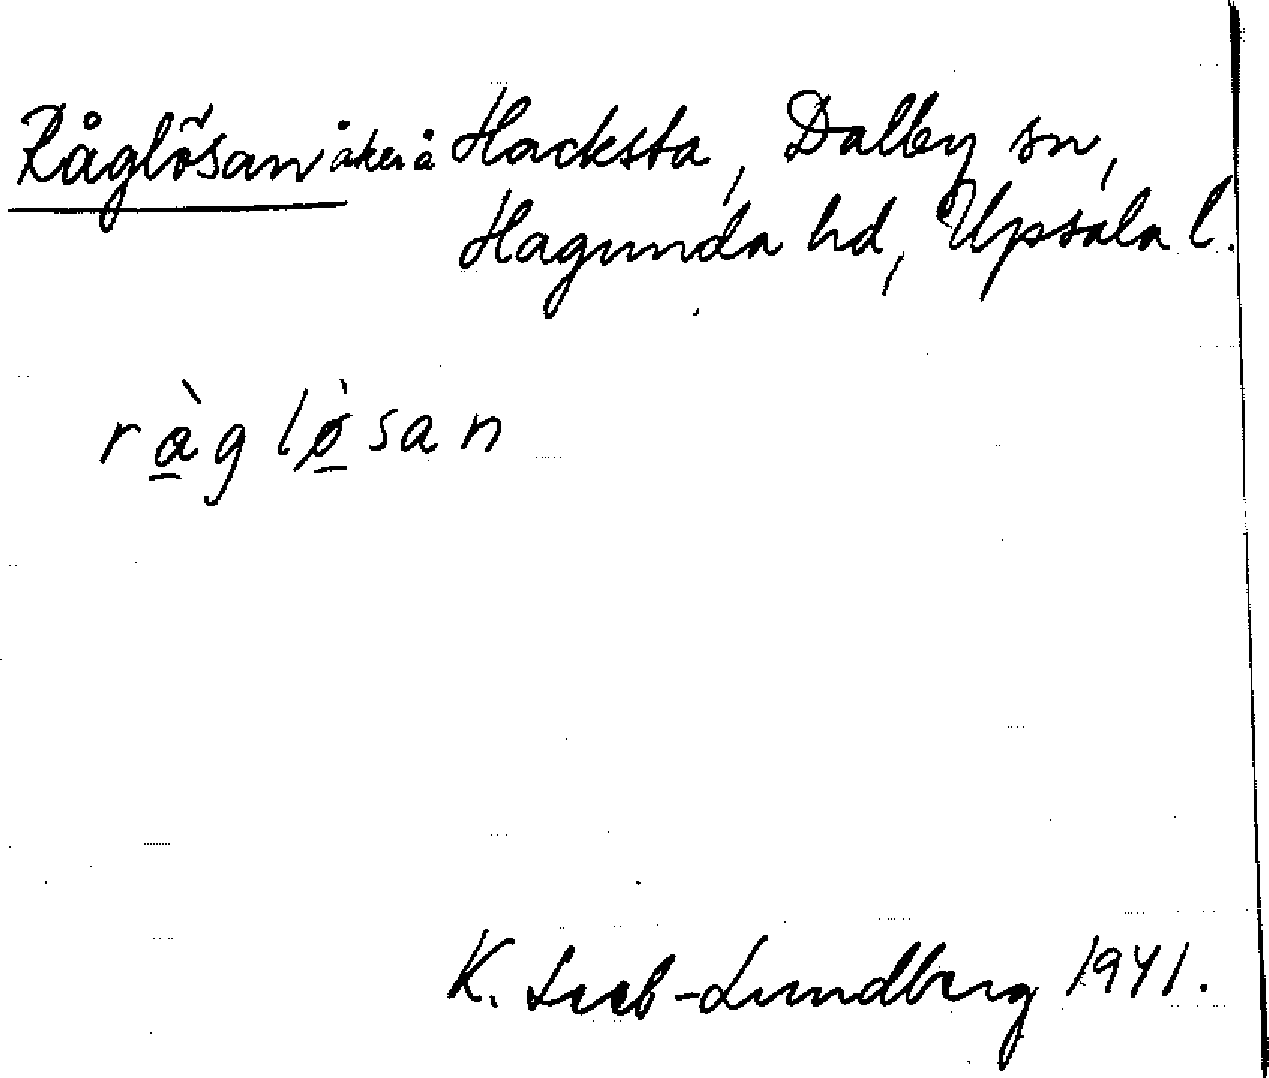 Råglösan åker å Hacksta, Dalby sn,
Hagunda hd, Upsala l.
rà̱glø̱̀san
K. Leeb-Lundberg 1941.